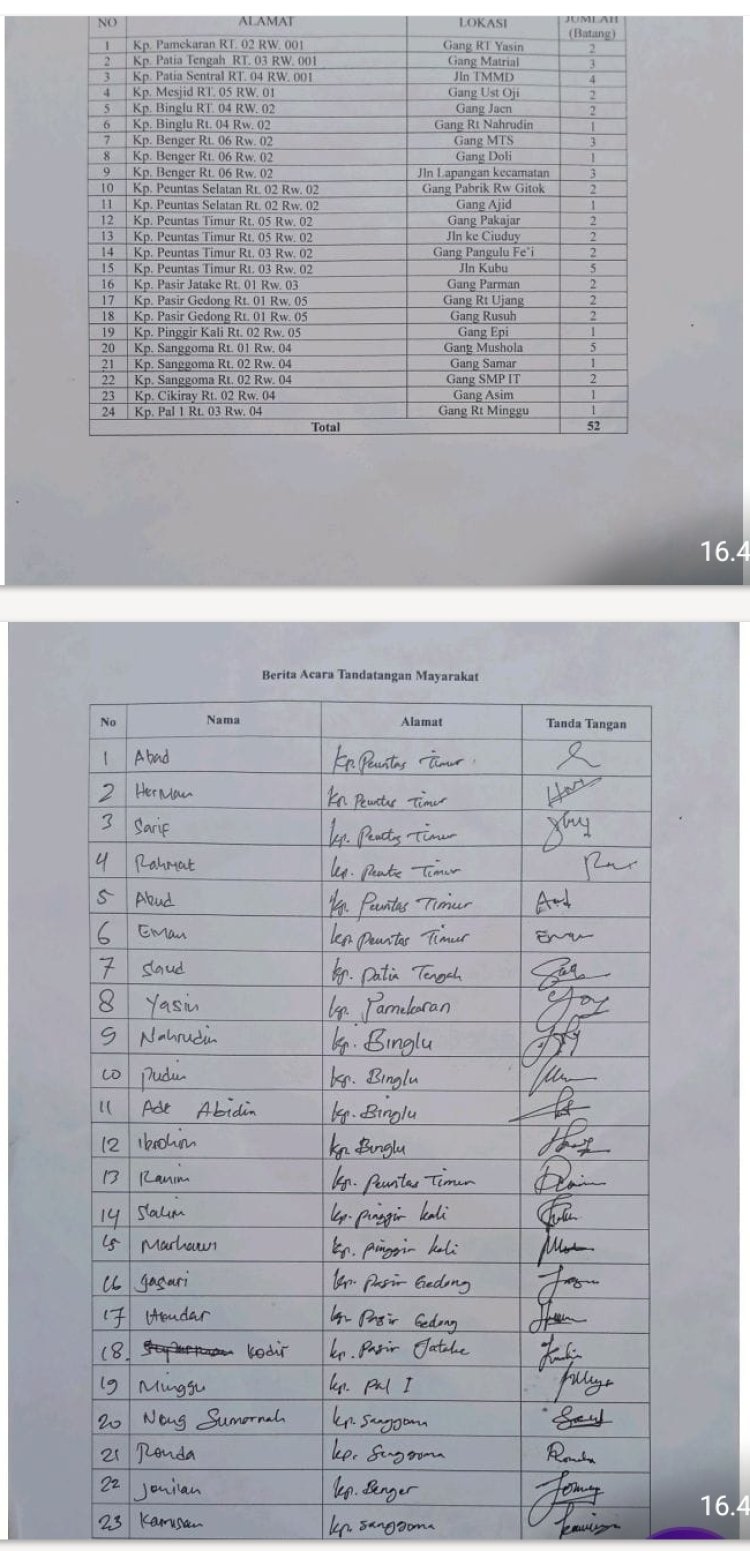 NO ALAMAT LOKASI JUMLAH (Batang)
1 Kp. Pamekaran RT. 02 RW. 001 Gang RT Yasin 2
2 Kp. Patia Tengah RT. 03 RW. 001 Gang Matrial 3
3 Kp. Patia Sentral RT. 04 RW. 001 Jln TMMD 4
4 Kp. Mesjid RT. 05 RW. 01 Gang Ust Oji 2
5 Kp. Binglu RT. 04 RW. 02 Gang Jaen 2
6 Kp. Binglu Rt. 04 Rw. 02 Gang Rt Nahrudin 1
7 Kp. Benger Rt. 06 Rw. 02 Gang MTS 3
8 Kp. Benger Rt. 06 Rw. 02 Gang Doli 1
9 Kp. Benger Rt. 06 Rw. 02 Jln Lapangan kecamatan 3
10 Kp. Peuntas Selatan Rt. 02 Rw. 02 Gang Pabrik Rw Gitok 2
11 Kp. Peuntas Selatan Rt. 02 Rw. 02 Gang Ajid 1
12 Kp. Peuntas Timur Rt. 05 Rw. 02 Gang Pakajar 2
13 Kp. Peuntas Timur Rt. 05 Rw. 02 Jln ke Ciuduy 2
14 Kp. Peuntas Timur Rt. 03 Rw. 02 Gang Pangulu Fe'i 2
15 Kp. Peuntas Timur Rt. 03 Rw. 02 Jln Kubu 5
16 Kp. Pasir Jatake Rt. 01 Rw. 03 Gang Parman 2
17 Kp. Pasir Gedong Rt. 01 Rw. 05 Gang Rt Ujang 2
18 Kp. Pasir Gedong Rt. 01 Rw. 05 Gang Rusuh 2
19 Kp. Pinggir Kali Rt. 02 Rw. 05 Gang Epi 1
20 Kp. Sanggoma Rt. 01 Rw. 04 Gang Mushola 5
21 Kp. Sanggoma Rt. 02 Rw. 04 Gang Samar 1
22 Kp. Sanggoma Rt. 02 Rw. 04 Gang SMP IT 2
23 Kp. Cikiray Rt. 02 Rw. 04 Gang Asim 1
24 Kp. Pal 1 Rt. 03 Rw. 04 Gang Rt Minggu 1
Total 52
16.4
Berita Acara Tandatangan Mayarakat
No Nama Alamat Tanda Tangan
1 Abad Kp. Peuntas Timur
2 Herman Kp. Peuntas Timur
3 Sarif kp. Peuntas Timur
4 Rahmat kp. Peuntas Timur
5 Abud kp. Peuntas Timur
6 Eman kp Peuntas Timur
7 Saud kp. Patia Tengah
8 Yasin kp. Pamekaran
9 Nahrudin kp. Binglu
10 Pudin kp. Binglu
11 Ade Abidin kp. Binglu
12 Ibrohim kp Binglu
13 kp. Peuntas Timur
14 Salim kp. pinggir kali
15 kp. pinggir kali
16 Jasari kp. Pasir Gedong
17 Hendar kp Pasir Gedong
18. Kodir kp. Pasir Jatake
19 Minggu kp. Pal I
20 Neng kp. Sanggoma
21 Ronda kp. Sanggoma
22 kp. Benger
23 kp. Sanggoma
16.4